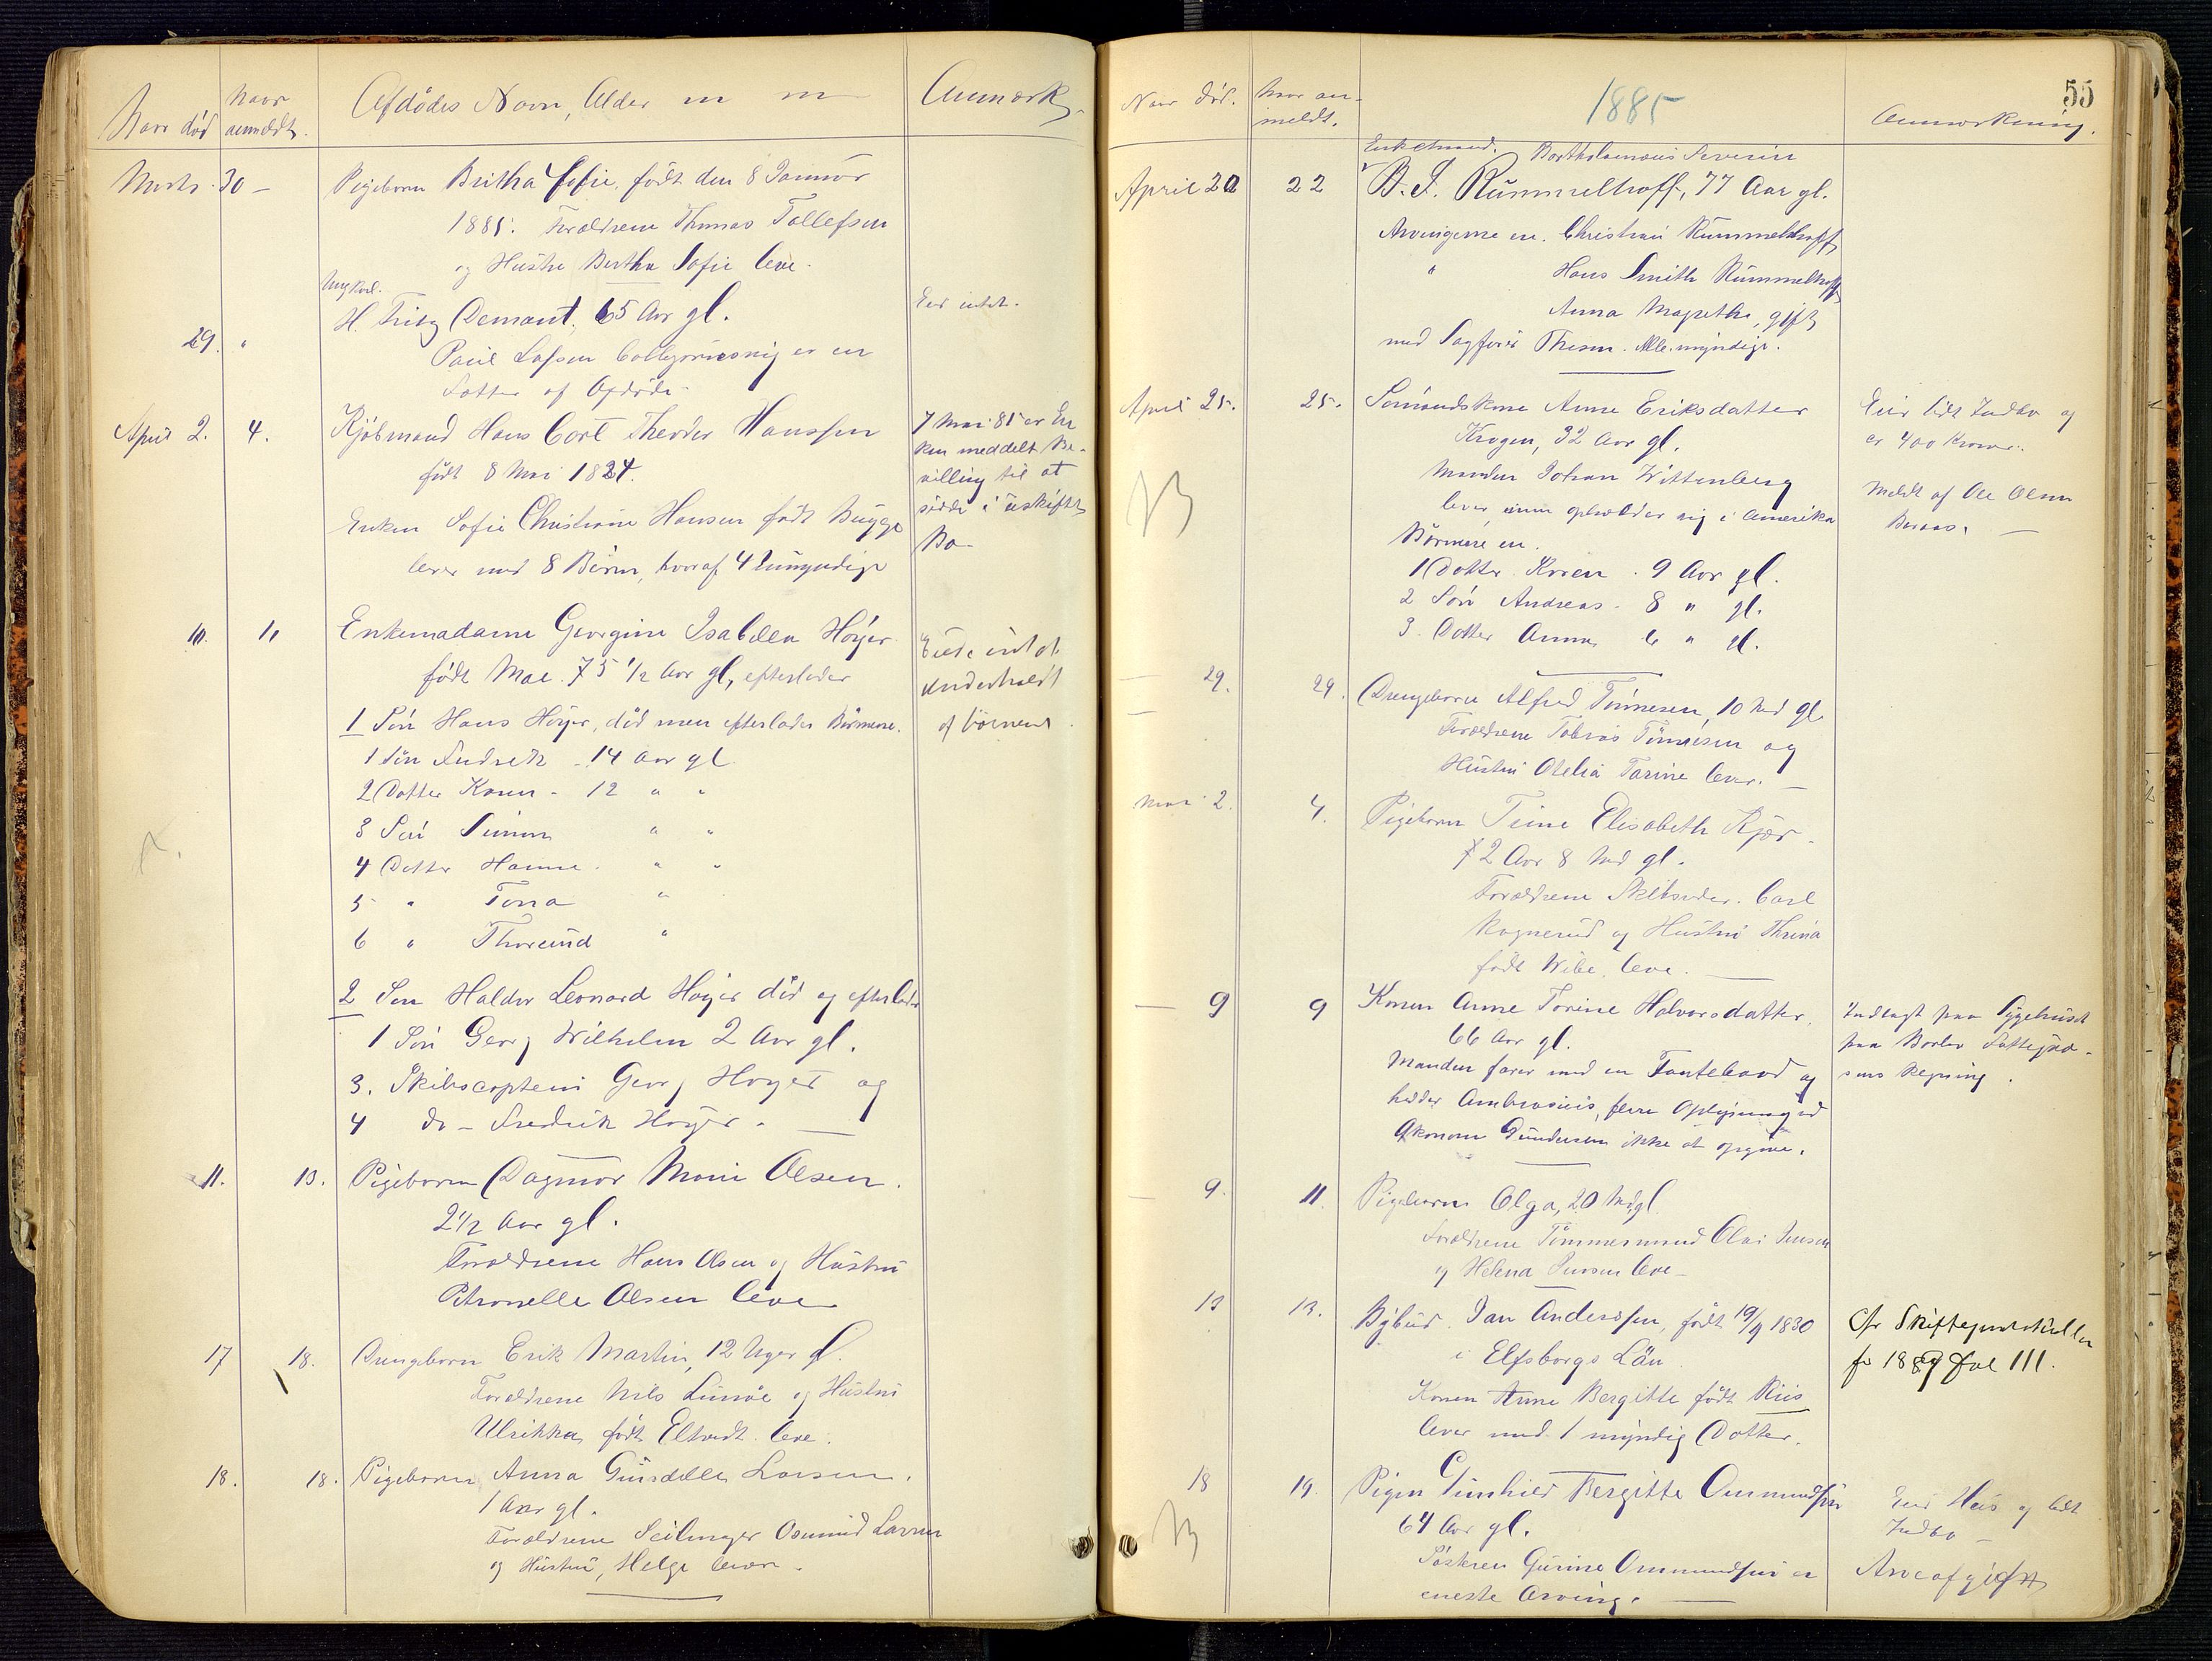 Naar død
Naar anmeldt.
Afdødes Navn, Alder m m
Anmærk.
Marts 30 –
Pigebarn Britha Sofie, født den 8 Januar
1885. Forældrene Thomas Tollefsen
og Hustru Bertha Sofie leve.
Ungkarl.
29. "
H. Fritz Demant, 65 Aar gl.
Eier intet.
Paul
er en
af Afdøde
April 2. 4.
Kjøbmand Hans Cort Theodor Hanssen
født 8 Mai 1824.
Enken Sofie Christiane Hansen født Bugge
lever med 8 Børn, hvoraf 4 umyndige
7 Mai 85 er En
ken meddelt Be-
villing til at
sidde i uskiftet
Bo –
10. 11
Enkemadame Georgine Isabella Høyer
født Moe. 75 1/2 Aar gl, efterlader
1 Søn Hans Høyer, død men efterlader Børnene.
1 Søn Fredrik – 14 Aar gl
2 Datter Karen – 12 " "
3 Søn Simon " "
4 Datter Hanne. " "
5 " Tora "
6 " Thorund "
Eiede intet
underholdt
af børnene
2 Søn Haldor Leonard Høyer død og efterlader
1 Søn Georg Wilhelm 2 Aar gl.
3. Skibscaptein Georg Høyer og
4 do – Fredrik Høyer. –
11. 13.
Pigebarn Dagmar Marie Olsen.
2 1/2 Aar gl.
Forældrene Hans Olsen og Hustru
Petronelle Olsen leve
17 18.
Drengebarn Erik Martin, 12 Uger gl.
Forældrene Nils Lunøe og Hustru
Ulrikka født Eltvedt leve.
18. 18.
Pigebarn Anna Gundella Larsen.
1 Aar gl.
Forældrene Seilmager Osmund Larsen
og Hustru, Helge leve.
55
Naar død.
Naar an-
meldt.
1885
Anmærkning.
Enkemand. Bartholomæus Severin
April 20 22
B. S. Rummelhoff, 77 Aar gl.
Arvingerne ere. Christian Rummelhoff
" Hans Smith Rummelhoff
Anna Magrethe, gift
med Sagfører Thesen. Alle myndige.
April 25. 25.
Sømandskone Anne Eriksdatter
Krogen, 32 Aar gl.
Manden Johan Wittenberg
lever, opholder sig i Amerika
Børnene ere.
1 Datter Karen. 9 Aar gl.
2 Søn Andreas. 8 " gl.
3. Datter Anna 6 " gl.
Eier lidt Indbo og
er 400 Kroner.
Meldt af Ole Olsen
B
– 29. 29.
Drengebarn Alfred Tønnesen, 10 Md gl
Forældrene Tobias Tønnesen og
Hustru Otelia Tarine lever. –
Mai 2. 4.
Pigebarn Tine Elisabeth Kjær.
2 Aar 8 Md gl.
Forældrene Skibsreder Carl
Rognerud og Hustru Thrina
født Wibe, leve. –
– 9 9
Konen Anne Torine Halvorsdatter.
66 Aar gl.
Manden farer med en Fantebaad og
hedder Ambrosius, flere Oplysninger ved
Økonom Gundersen ikke at opgive.
Indlagt paa Sygehuset
paa Fattigvæ-
sens Regning.
– 9. 11
Pigebarn Olga, 20 Md. gl
Forældrene Tømmermand Olai Jensen
og Helena Jensen leve –
13 13.
Bybud. Jan Anderssen, født 19/9 1830
i Elfsborgs Län.
Konen Anne Bergitte født Riis
lever med 1 myndig Datter.
Cfr Skifteprotokollen
for 1889 Fol 111.
18 19.
Pigen Gunhild Bergitte Ommundsen
64 Aar gl.
Søsteren Gurine Ommundsen er
eneste Arving. –
Eier Hus og lidt
Indbo –
Arveafgift
B